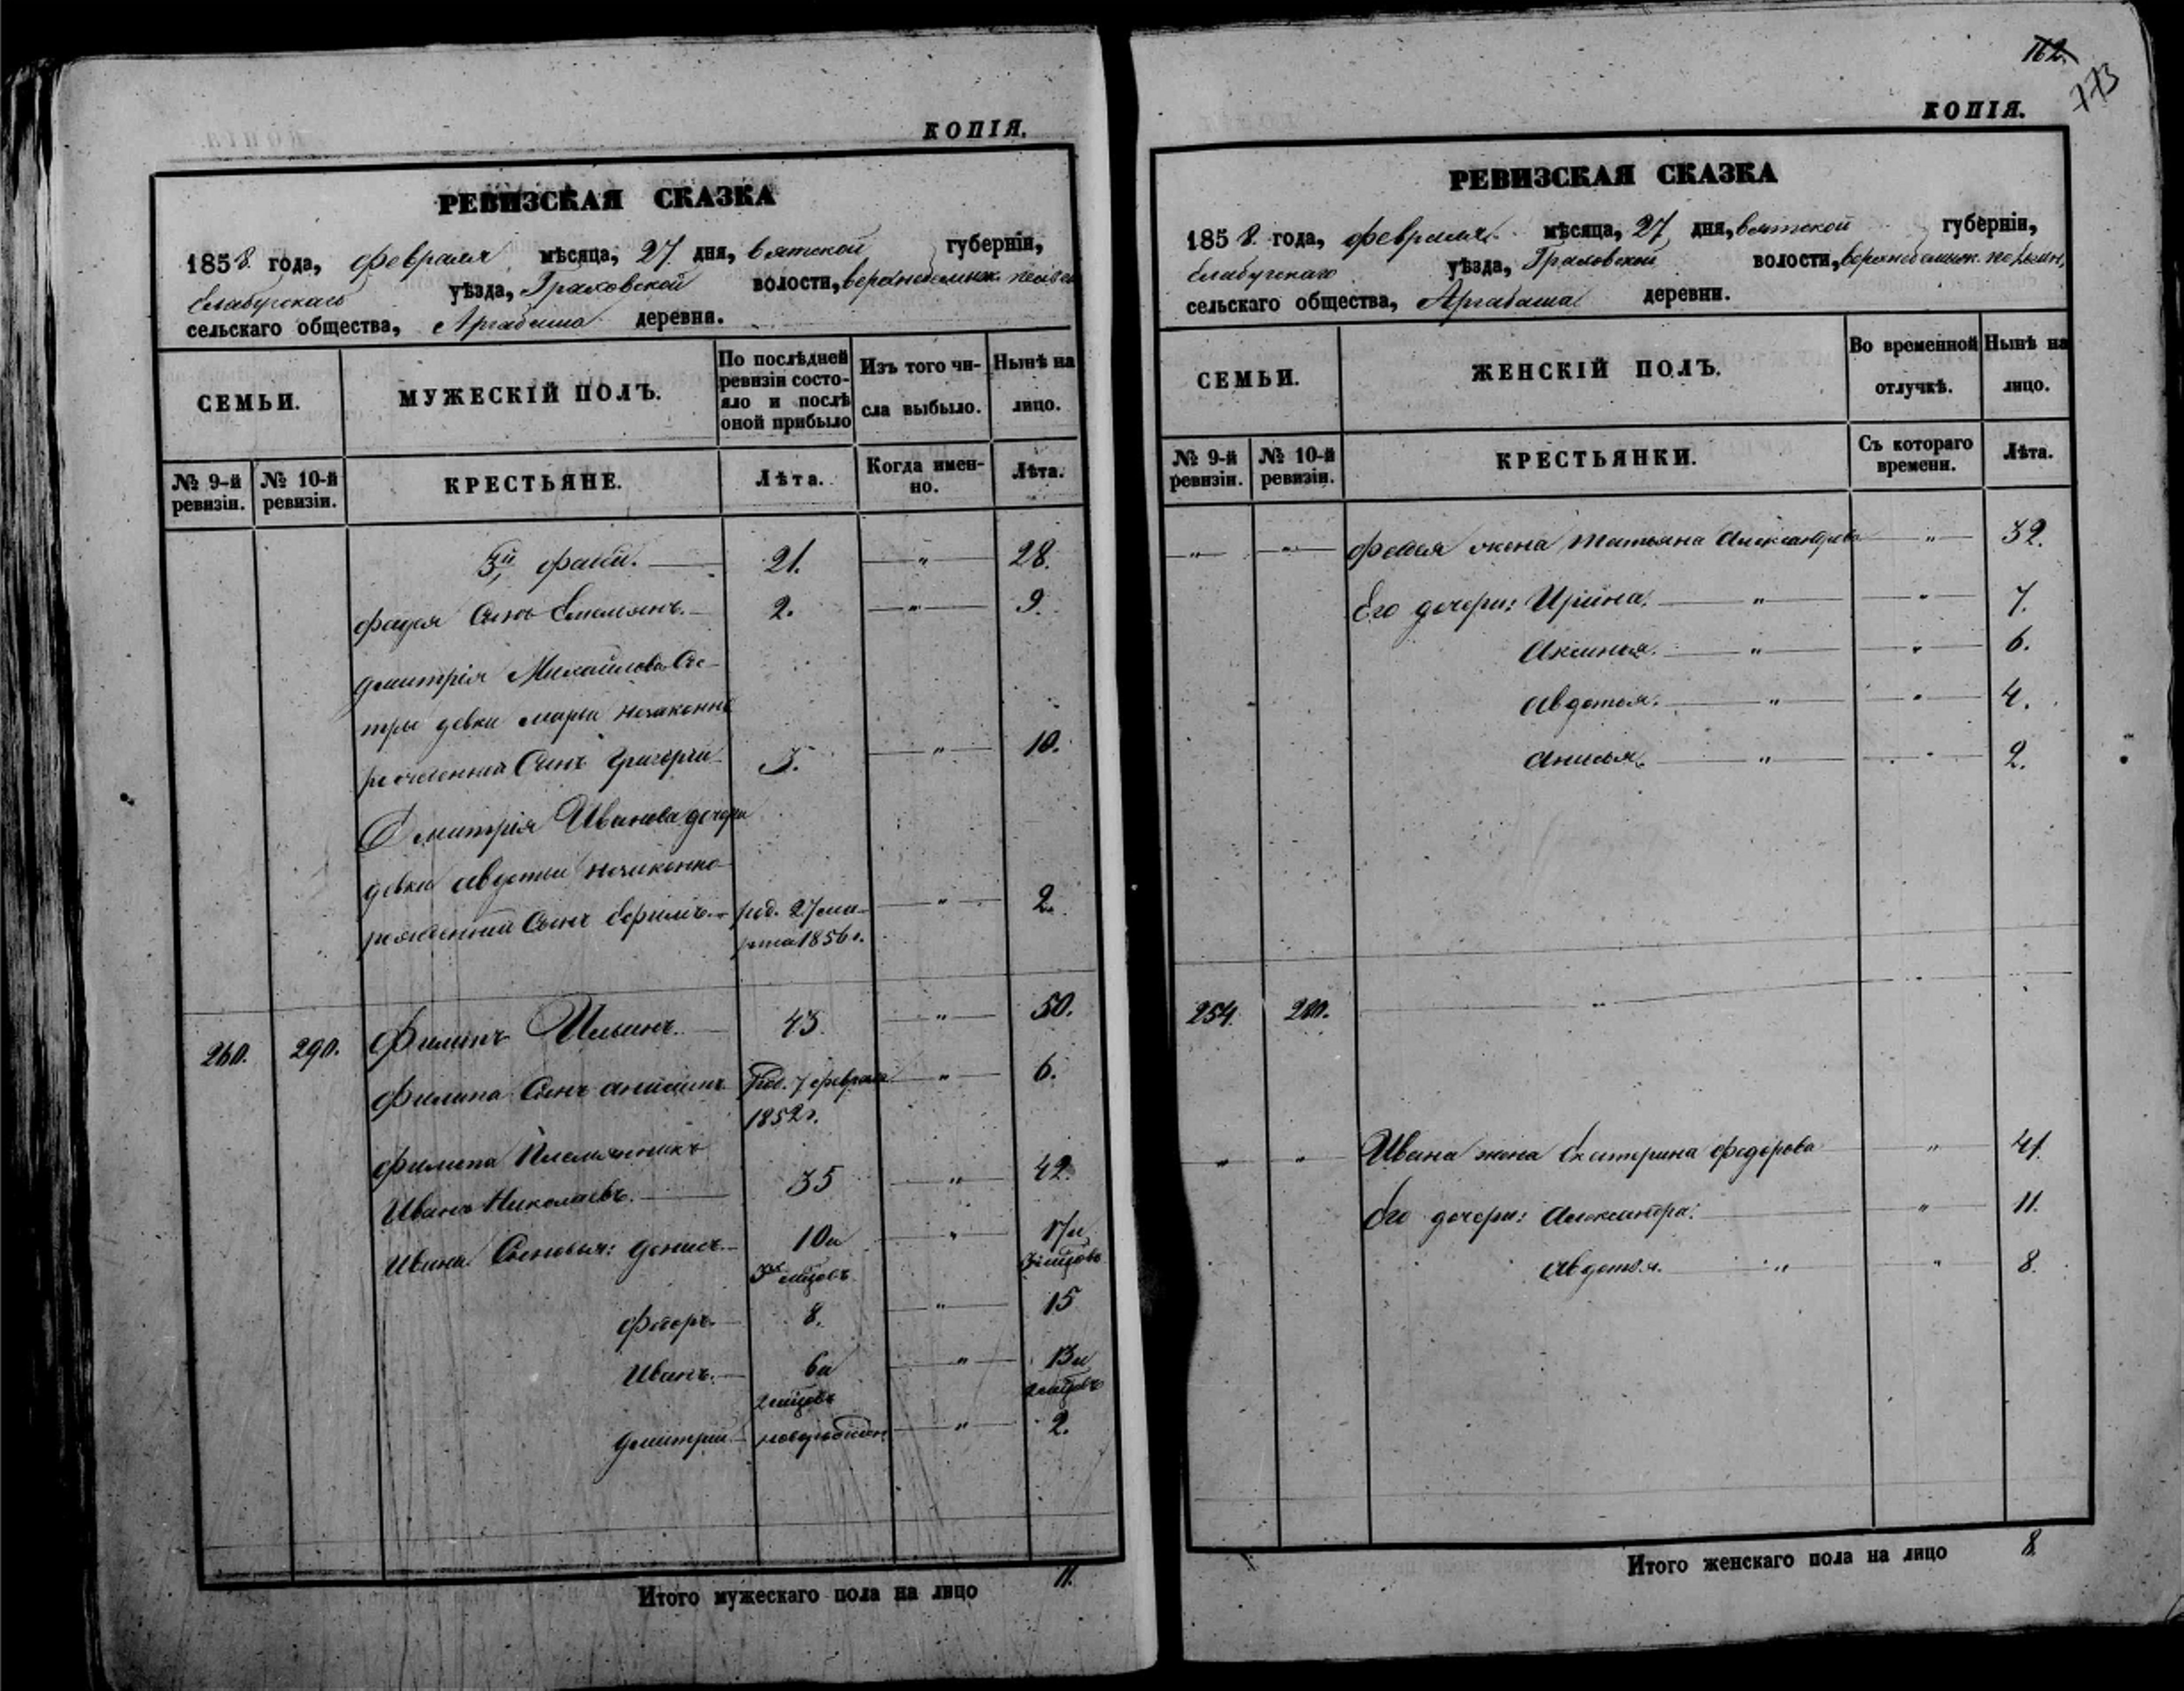 КОПІЯ.
РЕВИЗСКАЯ СКАЗКА
1858. года, февраля мѣсяца, 27 дня, вятской губерніи,
Елабугскаго уѣзда, Граховской волости,
сельскаго общества, деревни.
СЕМЬИ.
МУЖЕСКІЙ ПОЛЪ.
По послѣдней
ревизіи состо-
яло и послѣ
оной прибыло
Изъ того чи-
сла выбыло.
Нынѣ на
лицо.
№ 9-й
ревизіи.
№ 10-й
ревизіи.
КРЕСТЬЯНЕ.
Лѣта.
Когда имен-
но.
Лѣта.
3й, фадей. 21. " 28.
фадея Сынъ Емельянъ. 2. " 9.
дмитрія Михайлова Сес-
тры девки марьи незаконно
рожденный Сынъ григорій 3. " 10.
Дмитрія Иванова дочери
девки авдотьи незаконно
рожденный Сынъ Ефимъ. род. 27 ма- " 2.
рта 1856 г.
260. 290. Филипъ Ильинъ. 43. " 50.
Филипа Сынъ Род. 7 февраля " 6.
1852 г.
Филипа Племянникъ
Иванъ Николаевъ. 35 " 42.
Ивана Сыновья: денисъ. 10 и " 17 и
3хъ мцовъ 3 мцовъ
Федоръ. 8. " 15
Иванъ. 6 и " 13 и
2 мцовъ 2 мцовъ
дмитрий " 2.
Итого мужескаго пола на лицо 11.
162.
173
КОПІЯ.
РЕВИЗСКАЯ СКАЗКА
1858. года, февраля мѣсяца, 27 дня, вятской губерніи,
Елабугскаго уѣзда, Граховской волости,
сельскаго общества, деревни.
СЕМЬИ.
ЖЕНСКІЙ ПОЛЪ.
Во временной
отлучкѣ.
Нынѣ на
лицо.
№ 9-й
ревизіи.
№ 10-й
ревизіи.
КРЕСТЬЯНКИ.
Съ котораго
времени.
Лѣта.
" " фадея жена татьяна Александрова " 32.
Его дочери: Ирина. " " 7.
Аксинья. " " 6.
Авдотья. " " 4.
Анисья. " " 2.
254. " "
" " Ивана жена Екатерина федорова " 41.
Его дочери: Александра. " 11.
Авдотья. " " 8.
Итого женскаго пола на лицо 8.